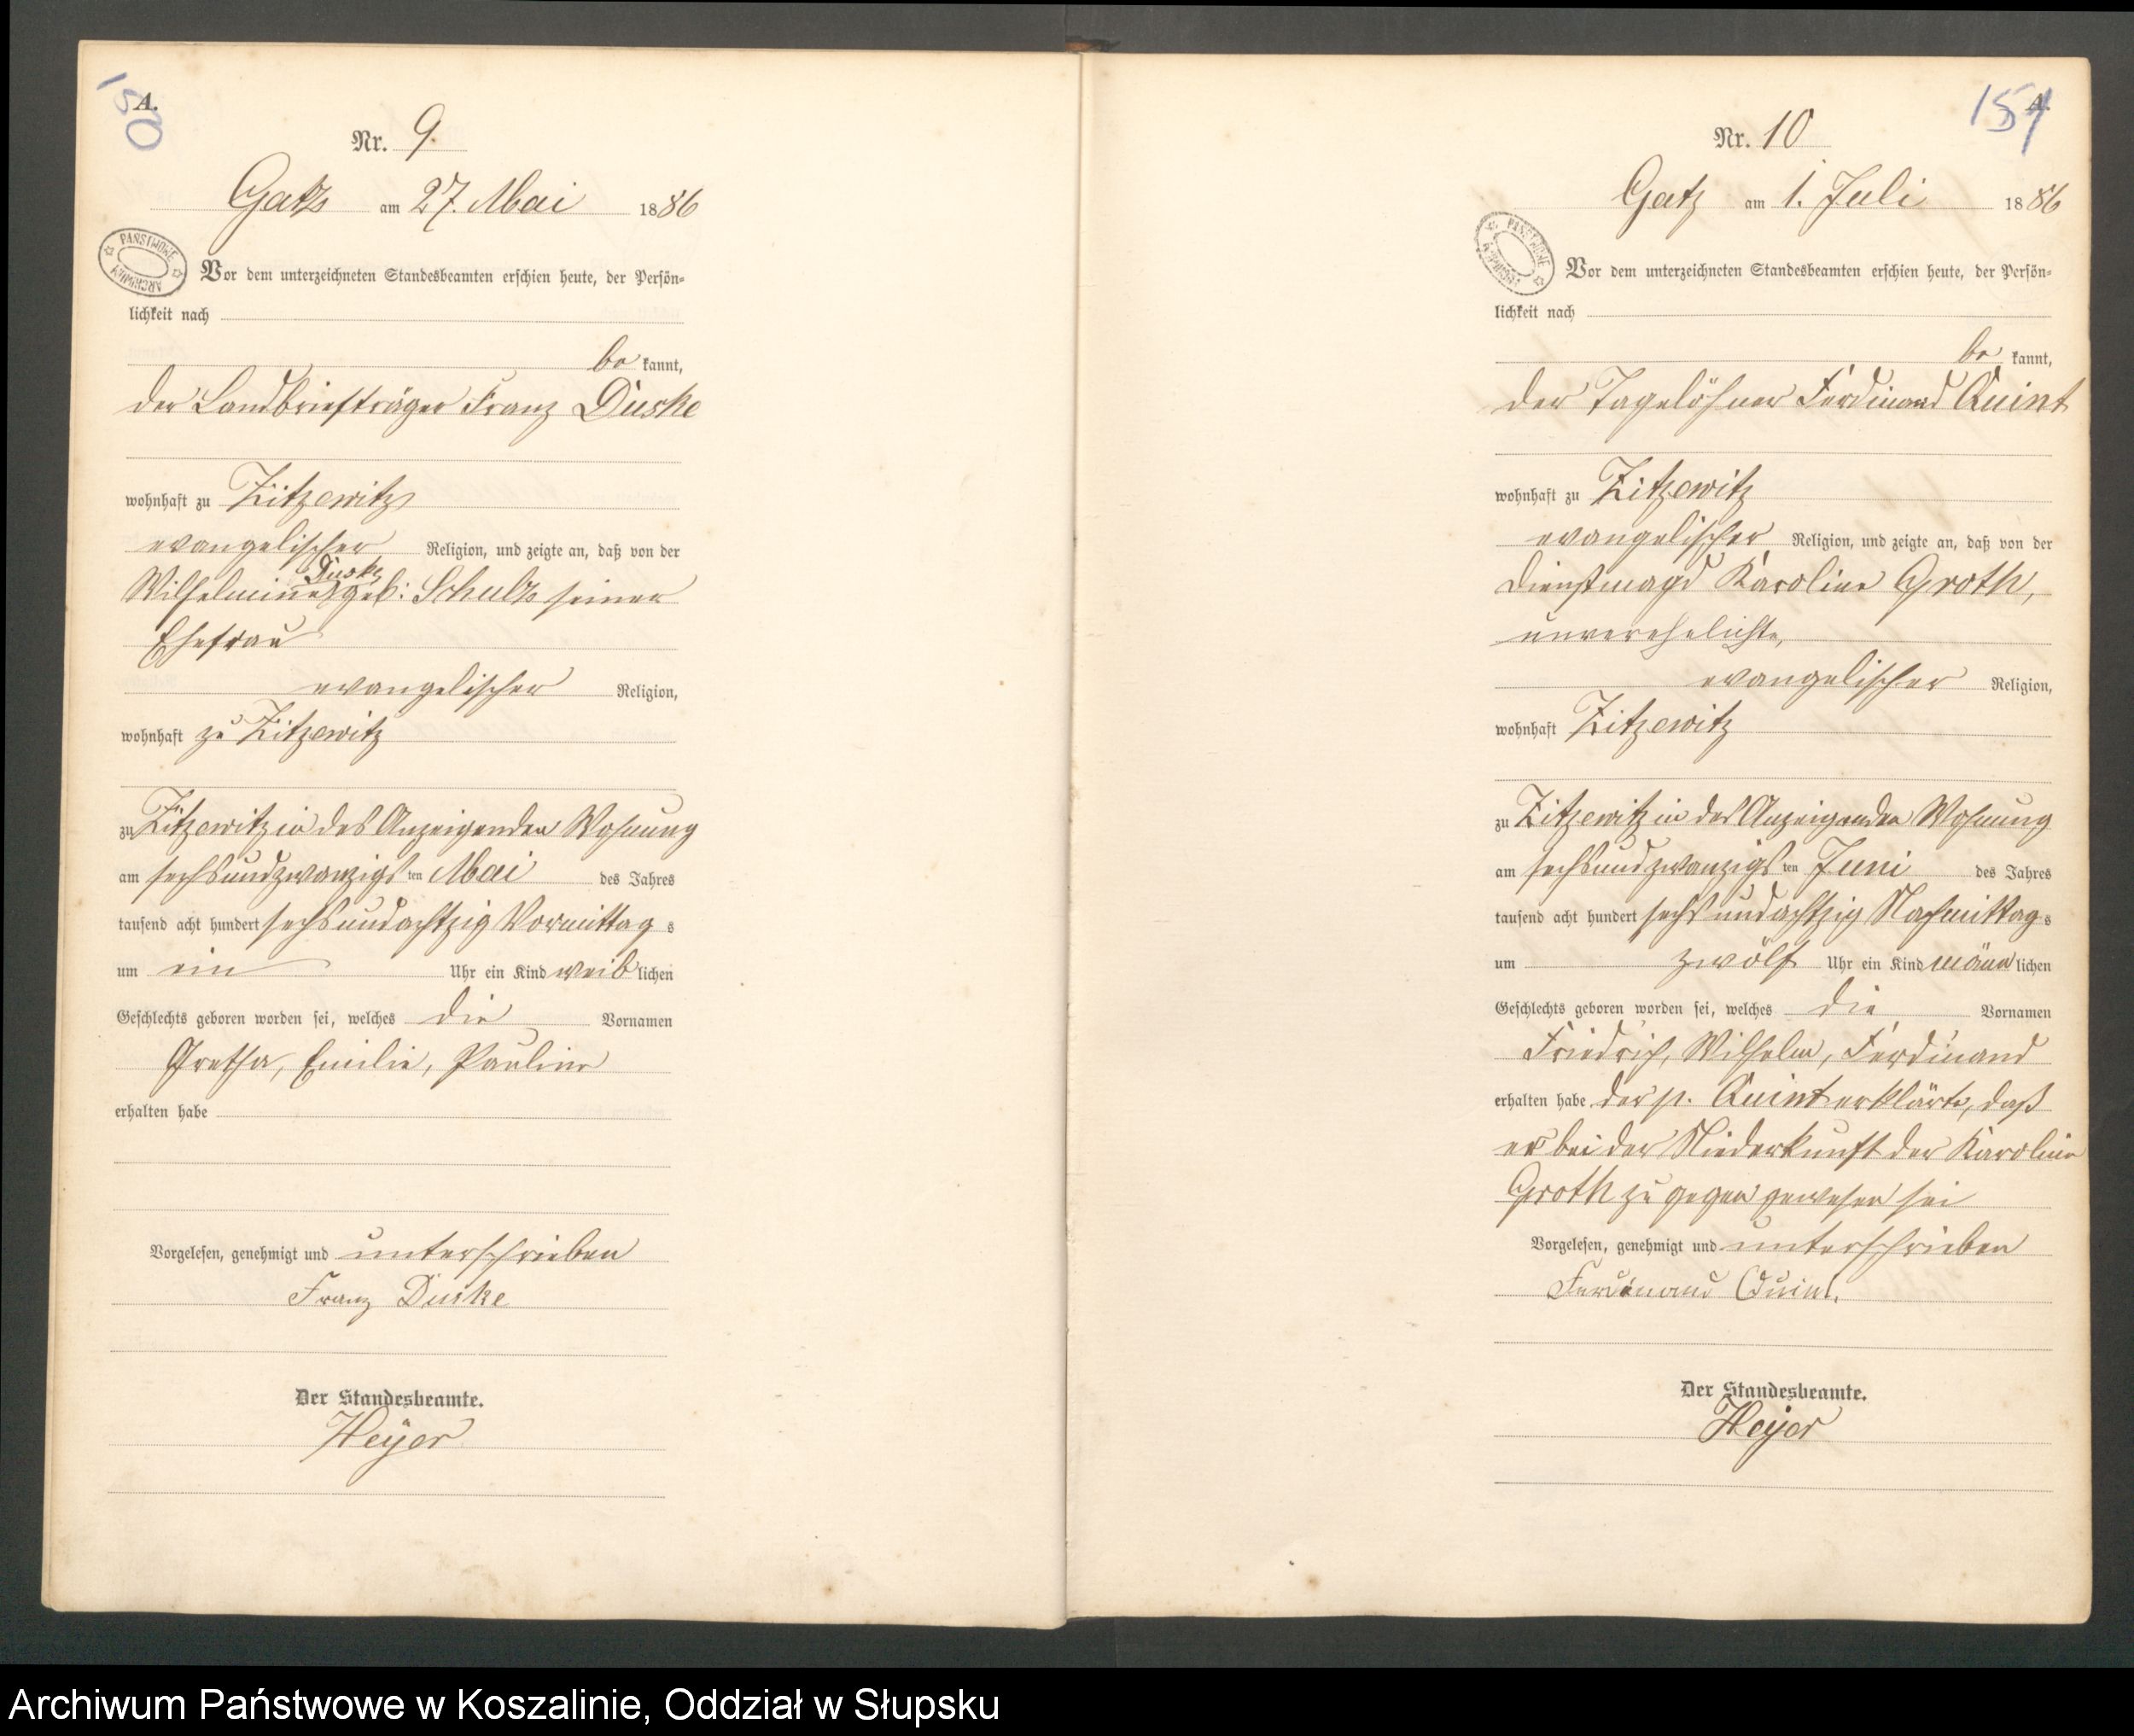 150
A.
Nr. 9.
Gatz am 27. Mai 1886
PAŃSTWOWE ARCHIWUM
Vor dem unterzeichneten Standesbeamten erschien heute, der Persön-
lichkeit nach
be kannt,
der Landbriefträger Franz Duske
wohnhaft zu Zitzewitz
evangelischer Religion, und zeigte an, daß von der
Duske
Wilhelmine geb: Schulz seiner
Ehefrau
evangelischer Religion,
wohnhaft zu Zitzewitz
zu Zitzewitz in des Anzeigenden Wohnung
am sechsundzwanzigsten Mai des Jahres
tausend acht hundert sechsundachtzig Vormittags
um ein Uhr ein Kind weiblichen
Geschlechts geboren worden sei, welches die Vornamen
Gretha, Emilie, Pauline
erhalten habe
Vorgelesen, genehmigt und unterschrieben
Franz Duske
Der Standesbeamte.
Heyer
151
A.
Nr. 10
Gatz am 1. Juli 1886
PAŃSTWOWE ARCHIWUM
Vor dem unterzeichneten Standesbeamten erschien heute, der Persön-
lichkeit nach
be kannt,
der Tagelöhner Ferdinand Quint
wohnhaft zu Zitzewitz
evangelischer Religion, und zeigte an, daß von der
Dienstmagd Karoline Groth,
unverehelichte,
evangelischer Religion,
wohnhaft Zitzewitz
zu Zitzewitz in des Anzeigenden Wohnung
am sechsundzwanzigsten Juni des Jahres
tausend acht hundert sechsundachtzig Nachmittags
um zwölf Uhr ein Kind männlichen
Geschlechts geboren worden sei, welches die Vornamen
Friedrich, Wilhelm, Ferdinand
erhalten habe. der p. Quint erklärte, daß
er bei der Niederkunft der Karoline
Groth zu gegen gewesen sei
Vorgelesen, genehmigt und unterschrieben
Ferdinand Quint.
Der Standesbeamte.
Heyer
Archiwum Państwowe w Koszalinie, Oddział w Słupsku